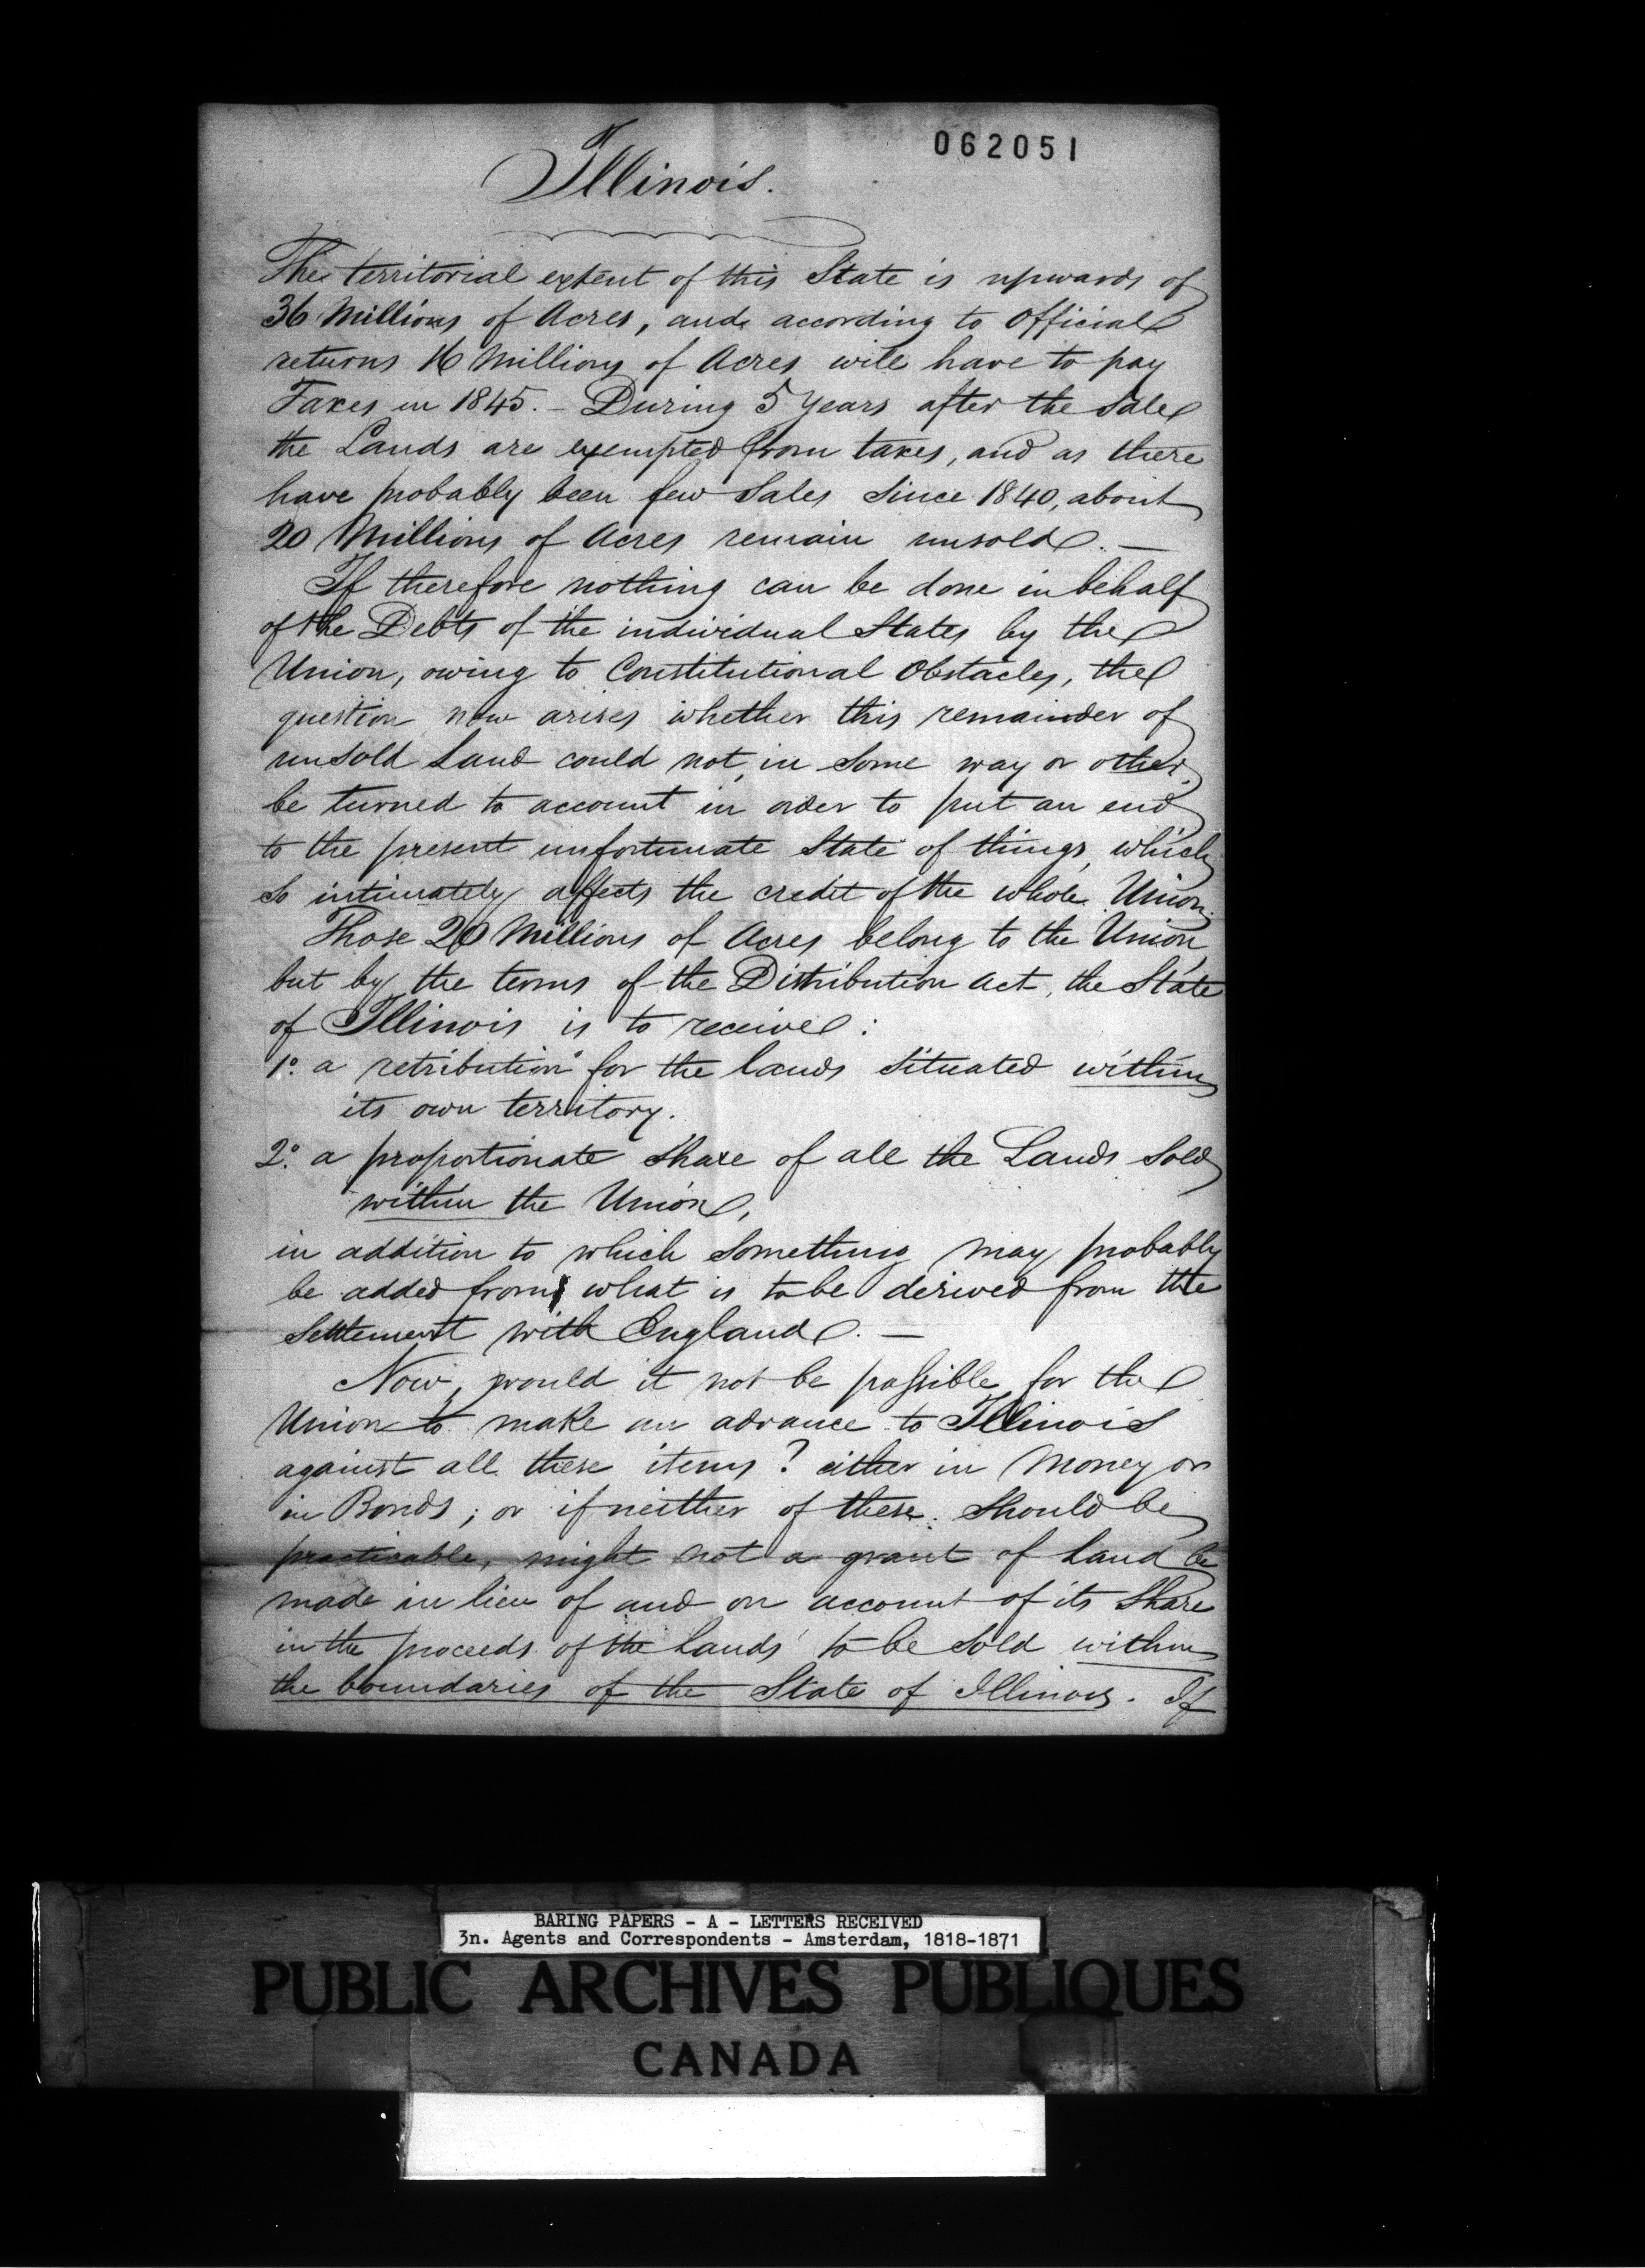 062051
Illinois.
The territorial extent of this State is upwards of
36 Millions of Acres, and according to Official
returns 16 Millions of Acres will have to pay
Taxes in 1845. — During 5 Years after the Sale
the Lands are exempted from taxes, and as there
have probably been few Sales since 1840, about
20 Millions of Acres remain unsold. —
If therefore nothing can be done in behalf
of the Debts of the individual States by the
Union, owing to Constitutional Obstacles, the
question now arises whether this remainder of
unsold Land could not, in some way or other,
be turned to account in order to put an end
to the present unfortunate State of things, which
so intimately affects the credit of the whole Union.
Those 20 Millions of Acres belong to the Union,
but by the terms of the Distribution Act, the State
of Illinois is to receive:
1º. a retribution for the lands situated within
its own territory.
2º. a proportionate share of all the Lands sold
within the Union,
in addition to which something may probably
be added from what is to be derived from the
Settlement with England. —
Now, would it not be possible for the
Union to make an advance to Illinois
against all these items? either in Money or
in Bonds; or if neither of these should be
practicable, might not a grant of Land be
made in lieu of and on account of its Share
in the proceeds of the Lands to be sold within
the boundaries of the State of Illinois. If
BARING PAPERS - A - LETTERS RECEIVED
3n. Agents and Correspondents - Amsterdam, 1818-1871
PUBLIC ARCHIVES PUBLIQUES
CANADA